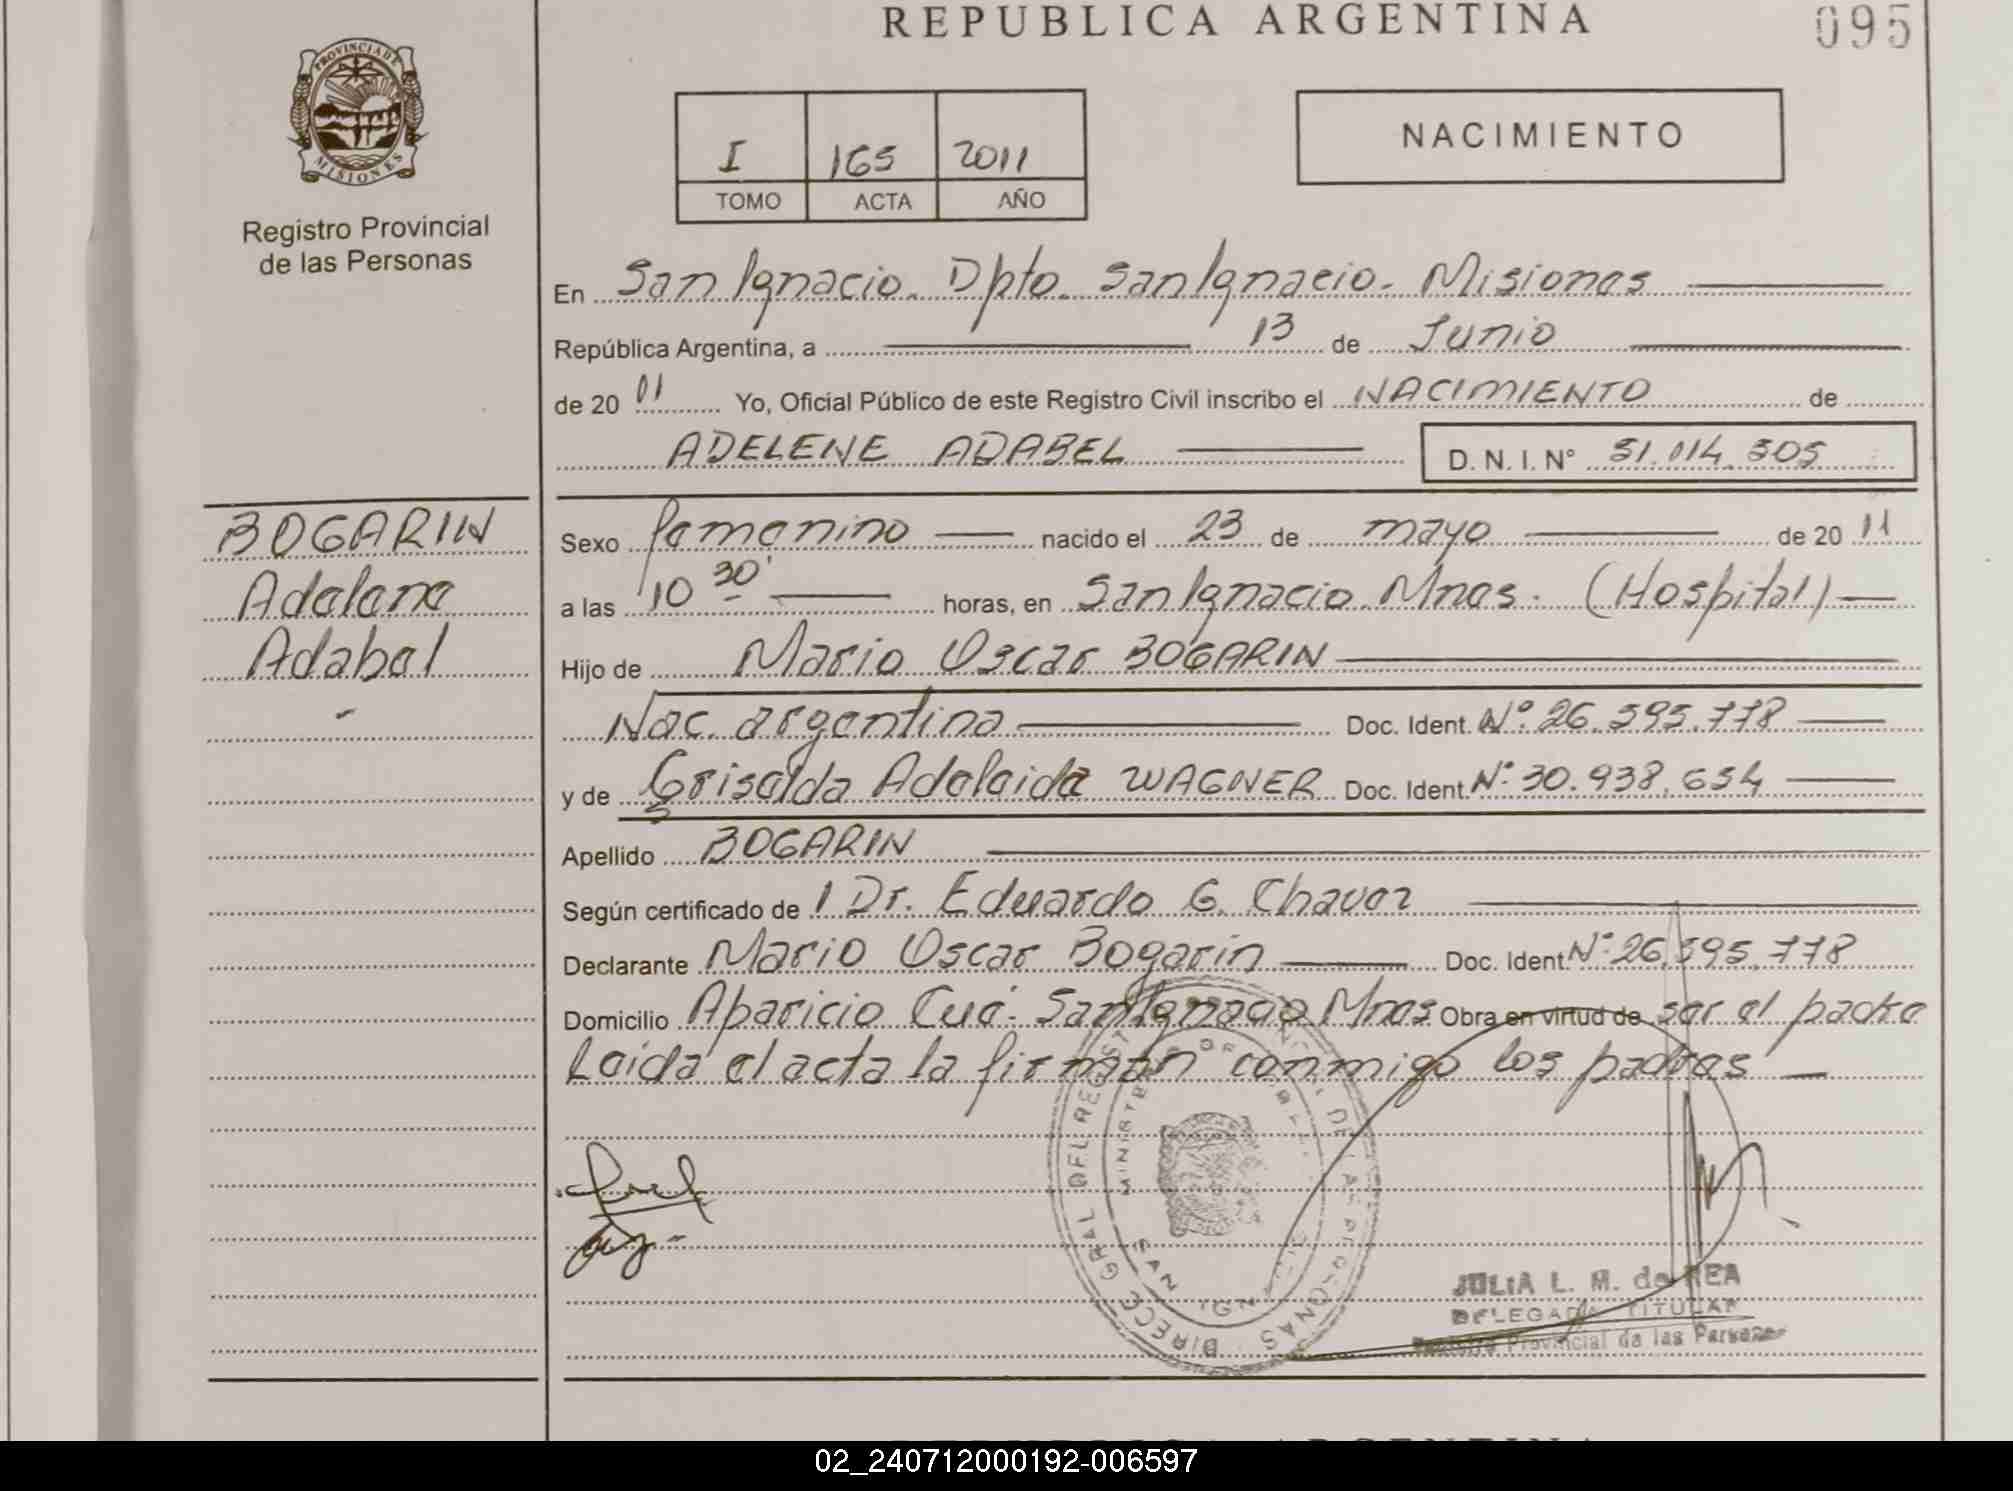 REPUBLICA ARGENTINA
095
PROVINCIA DE
MISIONES
Registro Provincial
de las Personas
I 165 2011
TOMO ACTA AÑO
NACIMIENTO
En San Ignacio. Dpto. San Ignacio. Misiones
República Argentina, a 13 de Junio
de 20 01 Yo, Oficial Público de este Registro Civil inscribo el NACIMIENTO de
ADELENE ADABEL D. N. I. N° 51.014.305
BOGARIN
Adelene
Adabel
Sexo femenino nacido el 23 de mayo de 20 11
a las 10 30' horas, en San Ignacio Mnes. (Hospital)
Hijo de Mario Oscar BOGARIN
Nac. argentina Doc. Ident. N° 26.595.778
y de Griselda Adelaida WAGNER Doc. Ident. N° 30.938.654
Apellido BOGARIN
Según certificado de l Dr. Eduardo G. Chavez
Declarante Mario Oscar Bogarin Doc. Ident. N° 26.595.778
Domicilio Aparicio Cué. San Ignacio Mnes Obra en virtud de ser el padre
Leída el acta la firman conmigo los padres
JULIA L. M. de REA
DELEGADA TITULAR
Registro Provincial de las Personas
02_240712000192-006597